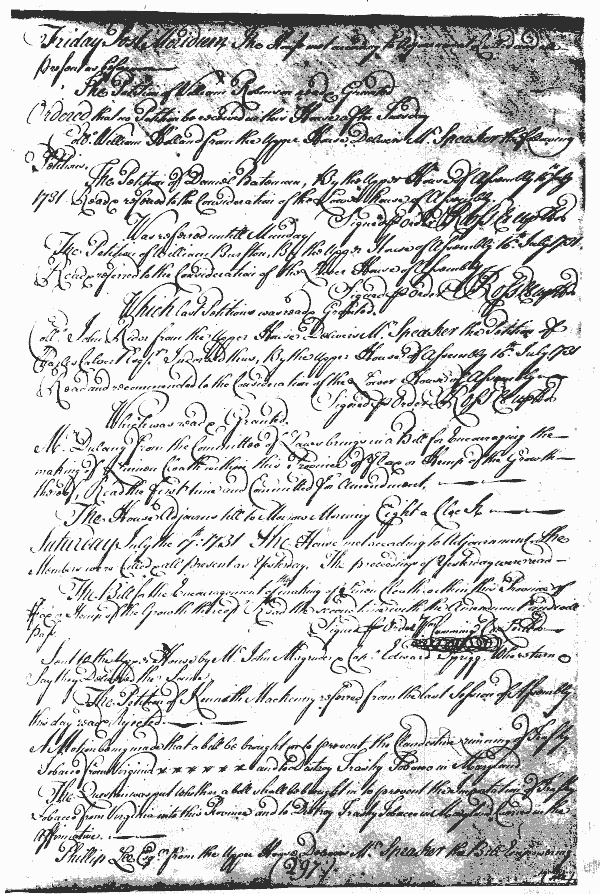 Friday Post Meridiem The House met according to Adjournment
present as before
The Petition of William Robinson read & Granted
Ordered that no Petition be received in this House after Tuesday
Coll. William Holland from the Upper House Delivers Mr. Speaker the following
Petitions,
The Petition of Daniel Bateman, By the Upper House of Assembly 16th July
1731 Read & referred to the Consideration of the Lower House of Assembly
Signed p Order R Ross Cl up Ho
Was referred until Monday
The Petition of William Burton, By the Upper House of Assembly 16th July 1731
Read & referred to the Consideration of the Lower House of Assembly
Signed p Order R Ross Cl up Ho
Which last Petitions was read & Granted.
Coll. John Rider from the Upper House Delivers Mr. Speaker the Petition of
Charles Calvert Esqr. Indorsed thus, By the Upper House of Assembly 16th July 1731
Read and recommended to the Consideration of the Lower House of Assembly
Signed p Order R Ross Cl up Ho
Which was read & Granted.
Mr. Dulany from the Committee of Laws brings in a Bill for Encouraging the
making of Linnen Cloath within this Province of Flax or Hemp of the Growth
thereof, Read the first time and Committed for Amendment.
The House Adjourns till to Morrow Morning Eight a Clock
Saturday July the 17th. 1731 The House met according to Adjournment. The
Members were called all present as Yesterday. The proceedings of Yesterday were read
The Bill for the Encouragement of making of Linnen Cloath within this Province of
Flax or Hemp of the Growth thereof Read the second time with the Amendment and will
pass
Signed p Order
Sent to the Upper House by Mr. John Magruder & Capt. Edward Sprigg Who return &
Say they Delivered the Same
The Petition of Kenneth Mackenzy referred from the last Session of Assembly
this day read & rejected.
A Motion being made that a bill be brought in to prevent the Clandestine running of Trashy
Tobacco from Virginia and to Destroy Trashy Tobacco in Maryland
The Question was put whether a bill shall be brought in to prevent the Importation of Trashy
Tobacco from Virginia into this Province and to Destroy Trashy Tobacco in Maryland Carried in the
Affirmative.
Phillip Lee Esqr. from the Upper House Delivers Mr. Speaker the Bill Empowering
(297)